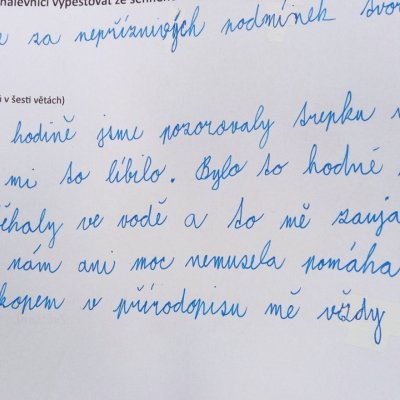 nálevníci vypěstovat ze senného
za nepříznivých podmínek tvoř
i v šesti větách)
hodině jsme pozorovaly trepku
mi to líbilo. Bylo to hodné
ěhaly ve vodě a to mě zauja
nám ani moc nemusela pomáha
kopem v přírodopisu mě vždy